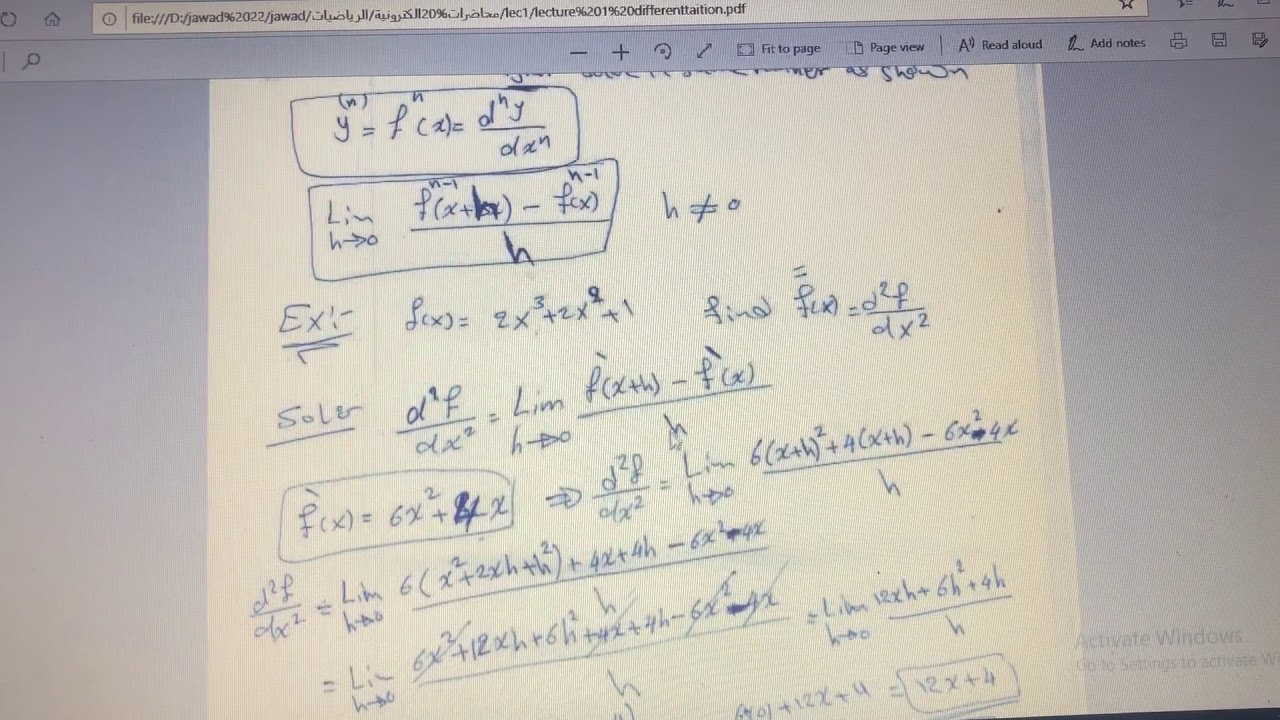 file:///D:/jawad%2022/jawad/محاضرات%20الكترونية/الرياضيات/lec1/lecture%201%20differenttaition.pdf
Fit to page Page view Read aloud Add notes
as shown
y⁽ⁿ⁾ = fⁿ(x) = dⁿy/dxⁿ
Lim h→0 (fⁿ⁻¹(x+h) - fⁿ⁻¹(x))/h h ≠ 0
Ex:- f(x) = 2x³+2x²+1 find f̿(x) = d²f/dx²
d²f/dx² = Lim h→0 (f`(x+h) - f`(x))/h
f`(x) = 6x²+4x ⇒ d²f/dx² = Lim h→0 (6(x+h)²+4(x+h) - 6x²-4x)/h
d²f/dx² = Lim h→0 (6(x²+2xh+h²)+4x+4h-6x²-4x)/h
= Lim h→0 (6x²+12xh+6h²+4x+4h-6x²-4x)/h = Lim h→0 (12xh+6h²+4h)/h
6(0)+12x+4 = 12x+4
Activate Windows
Go to Settings to activate Wi